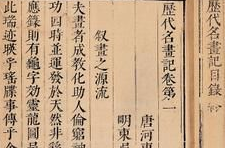 歷代名畫記目錄
歷代名畫記卷第一
唐河東
明東吳
叙畫之源流
夫畫者成教化助人倫窮神
功四時並運發於天然非
應籙則有龜字効靈龍圖呈
此瑞迹暎乎瑤牒事傳乎